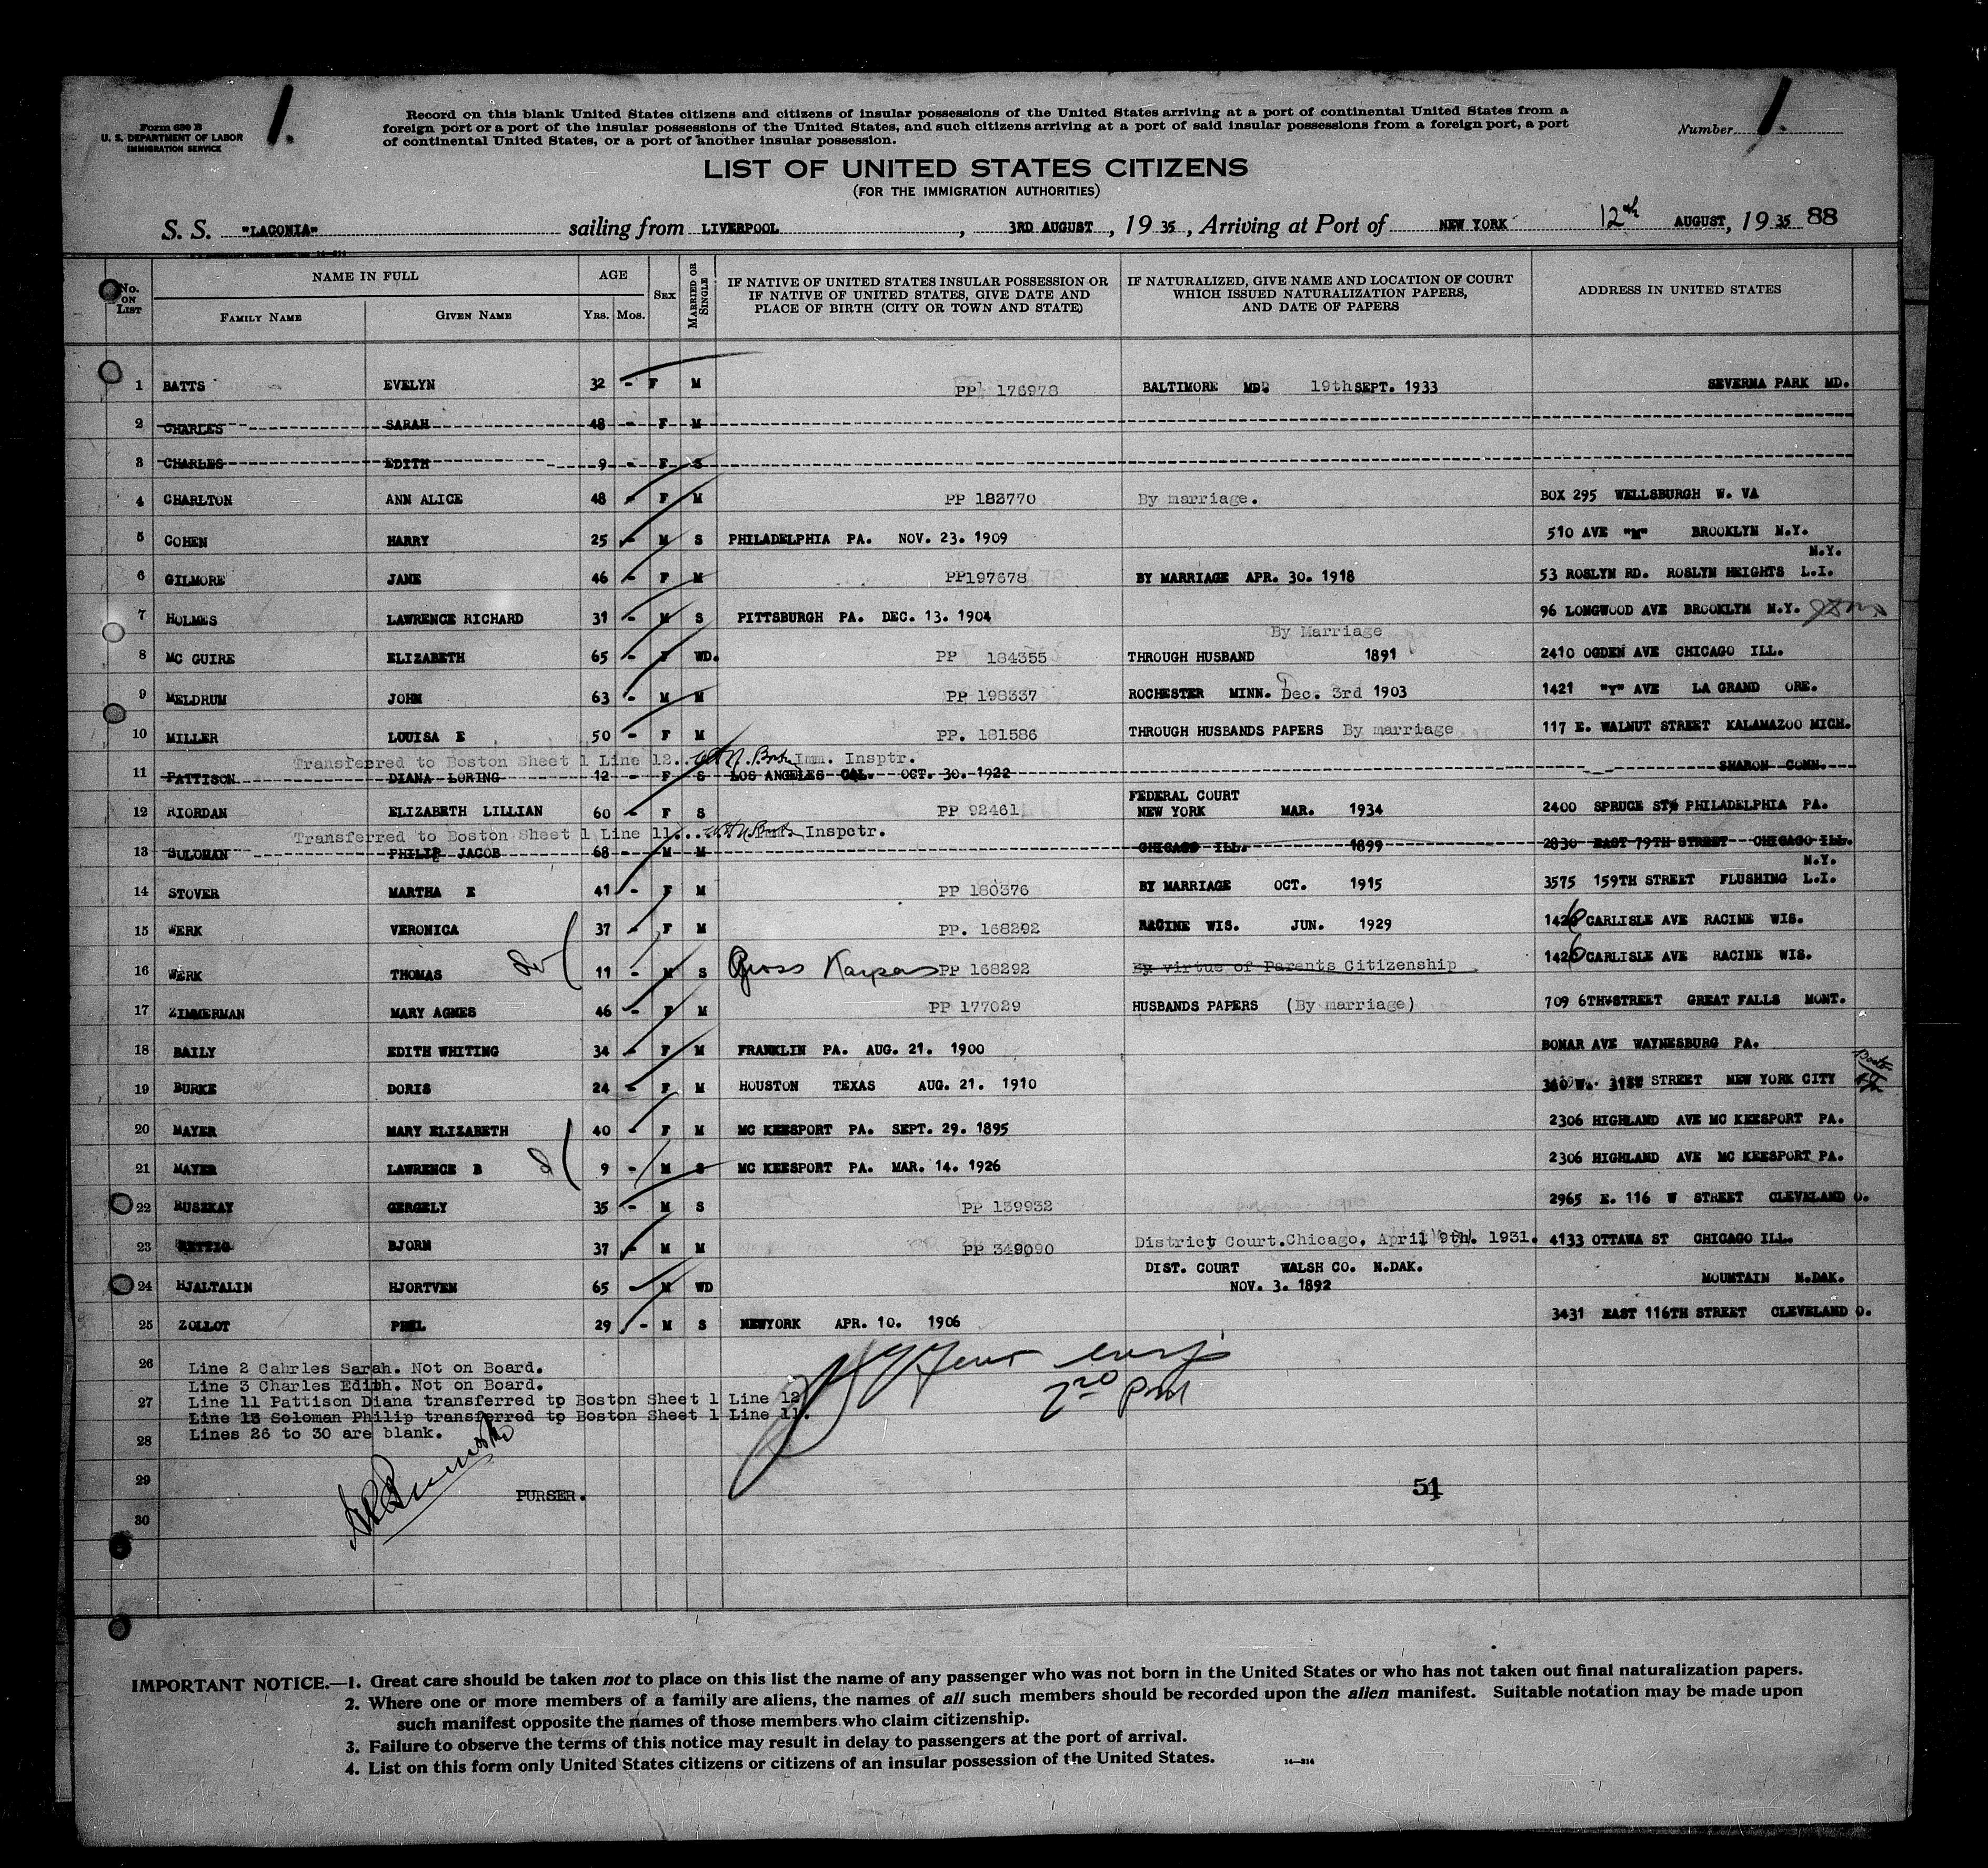 1.
Form 630 B
U. S. DEPARTMENT OF LABOR
IMMIGRATION SERVICE
Record on this blank United States citizens and citizens of insular possessions of the United States arriving at a port of continental United States from a
foreign port or a port of the insular possessions of the United States, and such citizens arriving at a port of said insular possessions from a foreign port, a port
of continental United States, or a port of another insular possession.
Number 1.
LIST OF UNITED STATES CITIZENS
(FOR THE IMMIGRATION AUTHORITIES)
S. S. "LACONIA" sailing from LIVERPOOL, 3RD AUGUST, 1935, Arriving at Port of NEW YORK 12th AUGUST, 1935 88
No. ON LIST
NAME IN FULL
FAMILY NAME GIVEN NAME
AGE
Yrs. Mos.
SEX
MARRIED OR SINGLE
IF NATIVE OF UNITED STATES INSULAR POSSESSION OR
IF NATIVE OF UNITED STATES, GIVE DATE AND
PLACE OF BIRTH (CITY OR TOWN AND STATE)
IF NATURALIZED, GIVE NAME AND LOCATION OF COURT
WHICH ISSUED NATURALIZATION PAPERS,
AND DATE OF PAPERS
ADDRESS IN UNITED STATES
1 BATTS EVELYN 32 - F M PP 176978 BALTIMORE MD. 19th SEPT. 1933 SEVERMA PARK MD.
2 CHARLES SARAH 48 - F M
3 CHARLES EDITH 9 - F S
4 CHARLTON ANN ALICE 48 - F M PP 183770 By marriage. BOX 295 WELLSBURGH W. VA
5 COHEN HARRY 25 - M S PHILADELPHIA PA. NOV. 23. 1909 510 AVE "M" BROOKLYN N.Y.
N.Y.
6 GILMORE JANE 46 - F M PP197678 BY MARRIAGE APR. 30. 1918 53 ROSLYN RD. ROSLYN HEIGHTS L.I.
7 HOLMES LAWRENCE RICHARD 31 - M S PITTSBURGH PA. DEC. 13. 1904 96 LONGWOOD AVE BROOKLYN N.Y.
By Marriage
8 MC GUIRE ELIZABETH 65 - F WD. PP 184355 THROUGH HUSBAND 1891 2410 OGDEN AVE CHICAGO ILL.
9 MELDRUM JOHN 63 - M M PP 198337 ROCHESTER MINN. Dec. 3rd 1903 1421 "Y" AVE LA GRAND ORE.
10 MILLER LOUISA E 50 - F M PP. 181586 THROUGH HUSBANDS PAPERS By marriage 117 E. WALNUT STREET KALAMAZOO MICH.
Transferred to Boston Sheet 1 Line 12. Imm. Insptr.
11 PATTISON DIANA LORING 12 - F S LOS ANGELES CAL. OCT. 30. 1922 SHARON CONN.
FEDERAL COURT
12 RIORDAN ELIZABETH LILLIAN 60 - F S PP 92461 NEW YORK MAR. 1934 2400 SPRUCE ST. PHILADELPHIA PA.
Transferred to Boston Sheet 1 Line 11. Inspctr.
13 SOLOMAN PHILIP JACOB 68 - M M CHICAGO ILL. 1899 2830 EAST 79TH STREET CHICAGO ILL.
N.Y.
14 STOVER MARTHA E 41 - F M PP 180376 BY MARRIAGE OCT. 1915 3575 159TH STREET FLUSHING L.I.
15 WERK VERONICA 37 - F M PP. 168292 RACINE WIS. JUN. 1929 1426 CARLISLE AVE RACINE WIS.
16 WERK THOMAS 11 - M S PP 168292 By virtue of Parents Citizenship 1426 CARLISLE AVE RACINE WIS.
17 ZIMMERMAN MARY AGNES 46 - F M PP 177029 HUSBANDS PAPERS (By marriage) 709 6TH STREET GREAT FALLS MONT.
18 BAILY EDITH WHITING 34 - F M FRANKLIN PA. AUG. 21. 1900 BONAR AVE WAYNESBURG PA.
19 BURKE DORIS 24 - F M HOUSTON TEXAS AUG. 21. 1910 STREET NEW YORK CITY
20 MAYER MARY ELIZABETH 40 - F M MC KEESPORT PA. SEPT. 29. 1895 2306 HIGHLAND AVE MC KEESPORT PA.
21 MAYER LAWRENCE B 9 - M S MC KEESPORT PA. MAR. 14. 1926 2306 HIGHLAND AVE MC KEESPORT PA.
22 RUSZKAY GERGELY 35 - M S PP 139932 2965 E. 116 W STREET CLEVELAND O.
23 BJORN 37 - M M PP 349090 District Court. Chicago, April 9th. 1931. 4133 OTTAWA ST CHICAGO ILL.
DIST. COURT WALSH CO. N.DAK.
24 HJALTALIN HJORTVEN 65 - M WD NOV. 3. 1892 MOUNTAIN N.DAK.
25 ZOLLOT PHIL 29 - M S NEWYORK APR. 10. 1906 3431 EAST 116TH STREET CLEVELAND O.
26 Line 2 Cahrles Sarah. Not on Board.
Line 3 Charles Edith. Not on Board.
27 Line 11 Pattison Diana transferred to Boston Sheet 1 Line 12
Line 13 Soloman Philip transferred to Boston Sheet 1 Line 11.
28 Lines 26 to 30 are blank.
29 PURSER. 51
30
IMPORTANT NOTICE.—1. Great care should be taken not to place on this list the name of any passenger who was not born in the United States or who has not taken out final naturalization papers.
2. Where one or more members of a family are aliens, the names of all such members should be recorded upon the alien manifest. Suitable notation may be made upon
such manifest opposite the names of those members who claim citizenship.
3. Failure to observe the terms of this notice may result in delay to passengers at the port of arrival.
4. List on this form only United States citizens or citizens of an insular possession of the United States. 14—314